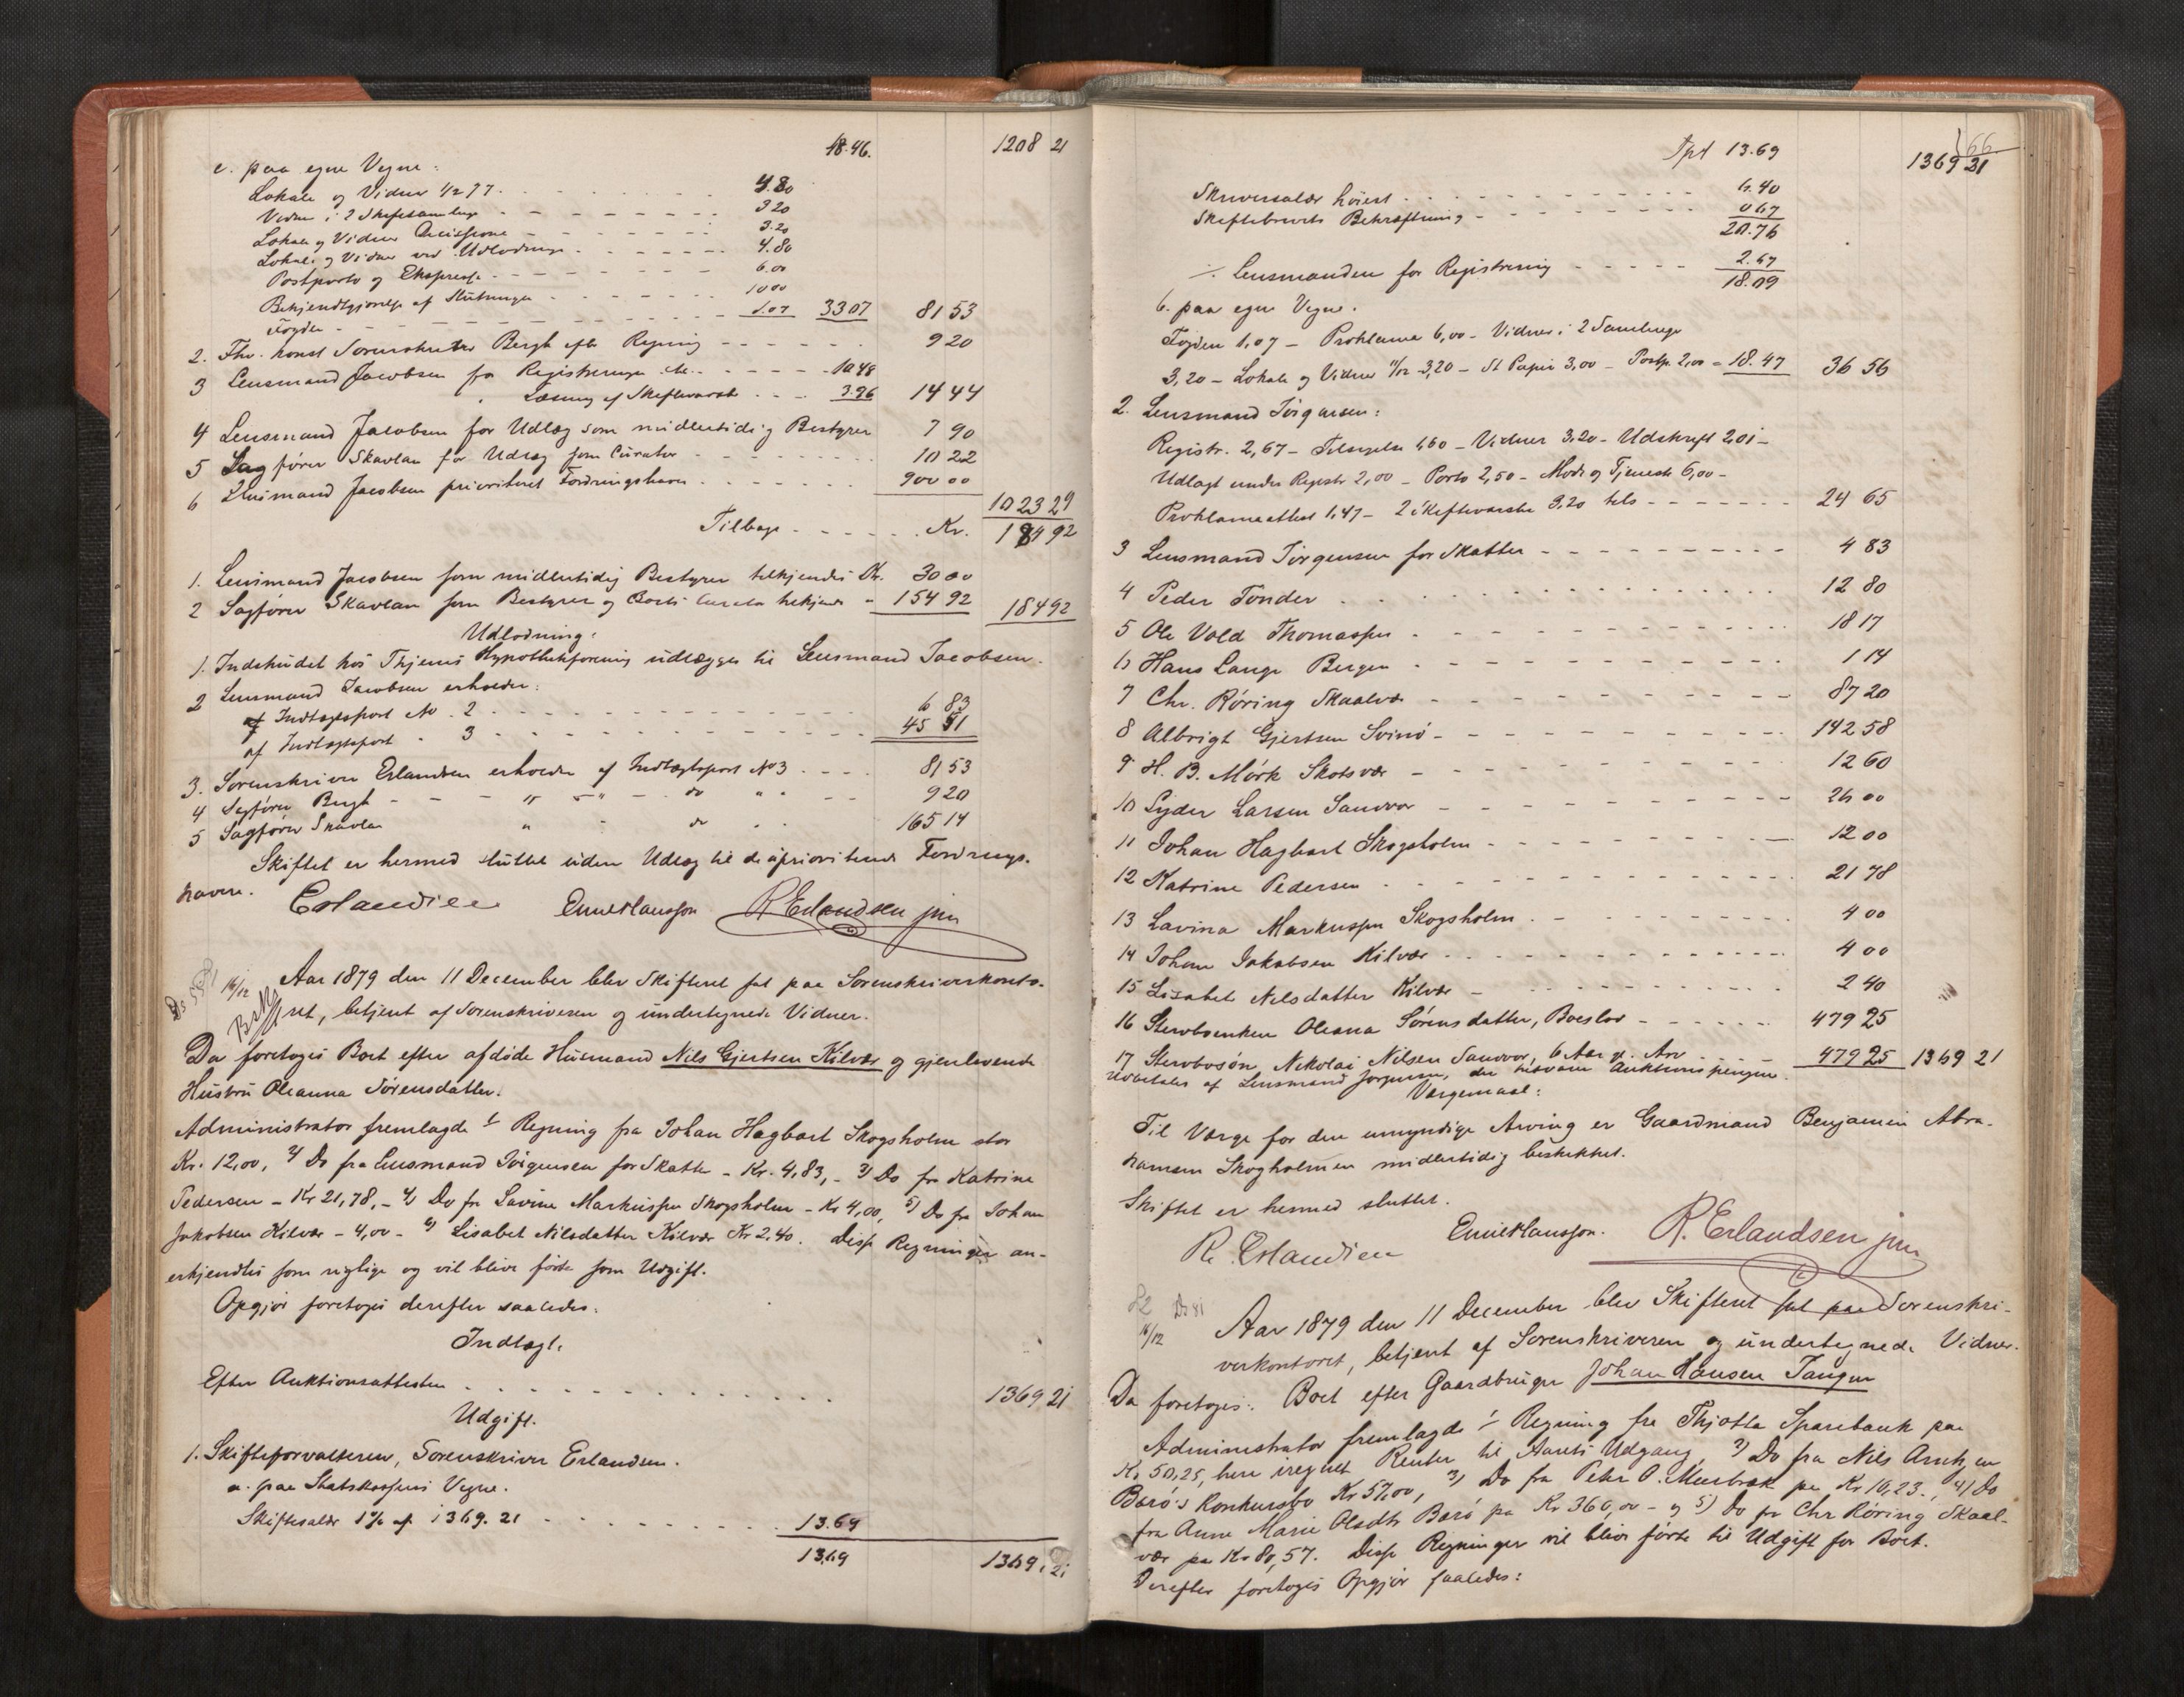 48.46. 1208 21
c. paa egne Vegne:
Lokale og Vidner 1/2 77 4.80
Vidner i 2 Skiftesamlinger 3 20
Lokale og Vidner 3.20
Lokale og Vidner ved Udlodningen 4.80
Postporto og Expresse 6.00
Bekjendtgjørelse af Slutningen 10 00
Fogden 1.07 3307 81 53
2. Fhv. konst Sorenskriver Bergh efter Regning 9 20
3 Lensmand Jacobsen for Registreringen 10 48
" Læsning af Skiftevarsel 3.96 14 44
4 Lensmand Jacobsen for Udlæg som midlertidig Bestyrer 7 90
5 Sagfører Skavlan for Udlæg som Curator 10 22
6 Lensmand Jacobsen prioriteret Fordringshaver 900 00
1023 29
Tilbage Kr. 184 92
1. Lensmand Jacobsen som midlertidig Bestyrer tilkjendes Kr. 30 00
2 Sagfører Skavlan som Bestyrer og Boets Curator tilkjendes " 154 92 184 92
Udlodning:
1. Indskudet hos Thjems Hypothekforening udlægges til Lensmand Jacobsen.
2 Lensmand Jacobsen erholder:
af Indtægtspost No. 2 6 83
af Indtægtspost " 3 45 51
3. Sorenskriver Erlandsen erholder af Indtægtspost No 3 81 53
4 Sagfører Bergh " " do " " 9 20
5 Sagfører Skavlan " " do " 165 14
Skiftet er hermed sluttet uden Udlæg til de uprioriterede Fordrings-
havere.
Erlandsen Emil Hansson R Erlandsen jun
16/12 Aar 1879 den 11 December blev Skifteret sat paa Sorenskriverkonto-
ret, betjent af Sorenskriveren og undertegnede Vidner.
Da foretoges Boet efter afdøde Husmand Nils Gjertsen Kilvær og gjenlevende
Hustru Oleanna Sørensdatter.
Administrator fremlagde 1) Regning fra Johan Hagbart Skogsholm stor
Kr. 12,00, 2) Do fra Lensmand Jörgensen for Skatter - Kr. 4,83, - 3) Do fra Katrine
Pedersen - Kr 21,78, - 4) Do fra Lavina Markussen Skogsholm - Kr 4,00, 5) Do fra Johan
Jakobsen Kilvær - 4,00 - 6) Lisabet Nilsdatter Kilvær Kr 2,40. Disse Regninger an-
erkjendtes som rigtige og vil blive førte som Udgift.
Opgjør foretoges derefter saaledes:
Indtægt.
Efter Auktionsattesten 1369 21
Udgift.
1. Skifteforvalteren, Sorenskriver Erlandsen.
a. paa Statskassens Vegne.
Skiftesalær 1% af 1369. 21 13.69
13.69 1369. 21
166
Tpt 13.69 1369 21
Skriversalær høiest 6.40
Skiftebrevets Bekræftning 0 67
20.76
÷ Lensmanden for Registrering 2.67
18.09
b. paa egne Vegne.
Fogden 1,07 - Proklama 6,00 - Vidner i 2 Samlinger
3,20 - Lokale og Vidner 11/12 3,20 - St Papir 3,00 - Postp. 2,00 = 18.47 36 56
2. Lensmand Jörgensen:
Registr. 2,67 - Tilsigelse 1,60 - Vidner 3.20 - Udskrift 2,01 -
Udlagt under Registr 2,00 - Porto 2,50 - Møde og Tjeneste 6,00 -
Proklamaattest 1,47 - 2 Skiftevarsler 3,20 tils 24 65
3 Lensmand Jörgensen for Skatter 4 83
4 Peder Tönder 12 80
5 Ole Vold Thomassen 18 17
6 Hans Lange Bergen 1 14
7 Chr. Röring Skaalvær 87 20
8 Albrigt Gjertsen Svinö 142 58
9 H. B. Mörk Skotsvær 12 60
10 Lyder Larsen Sandvær 26 00
11 Johan Hagbart Skogsholm 12 00
12 Katrine Pedersen 21 78
13 Lavina Markussen Skogsholm 4 00
14 Johan Jakobsen Kilvær 4 00
15 Lisabet Nilsdatter Kilvær 2 40
16 Stervboenken Oleana Sørensdatter, Boeslod 479 25
17 Stervbosön Nikolai Nilsen Sandvær, 6 Aar gl. Arv 479 25 1369 21
Udbetales af Lensmand Jörgensen, der hæver Auktionspengene.
Værgemaal:
Til Værge for den umyndige Arving er Gaardmand Benjamin Abra-
hamsen Skogholmen midlertidig beskikket.
Skiftet er hermed sluttet.
R. Erlandsen Emil Hansson. R. Erlandsen jun
16/12 Aar 1879 den 11 December blev Skifteret sat paa Sorenskri-
verkontoret, betjent af Sorenskriveren og undertegnede Vidner.
Da foretoges: Boet efter Gaardbruger Johan Hansen Tangen
Administrator fremlagde 1) Regning fra Thjøtta Sparebank paa
Kr 50,25, heri iregnet Renter til Aarets Udgang, 2) Do fra Nils Arntzen
Barö's Konkursbo Kr 57,00, 3) Do fra Peter O. Murbræk paa Kr 10,23., 4) Do
fra Anne Marie Olsdtr Barö paa Kr 360,00 - og 5) Do fra Chr Röring Skaal-
vær paa Kr 80,57. Disse Regninger vil blive førte til Udgift for Boet.
Derefter foretoges Opgjør saaledes: